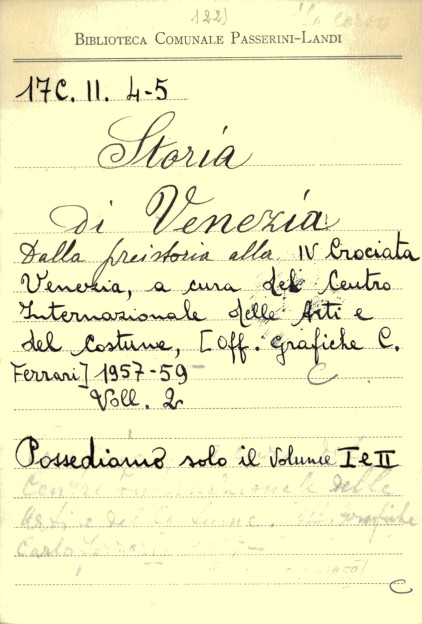 122)
BIBLIOTECA COMUNALE PASSERINI-LANDI
17C. II. 4-5
Storia
di Venezia
Dalla preistoria alla IV Crociata
Venezia, a cura del Centro
Internazionale delle Arti e
del Costume, [Off. grafiche C.
Ferrari] 1957-59
Voll. 2
C
Possediamo solo il Volume I e II
Centro Internazionale delle
Arti e del Costume grafiche
Carlo
C